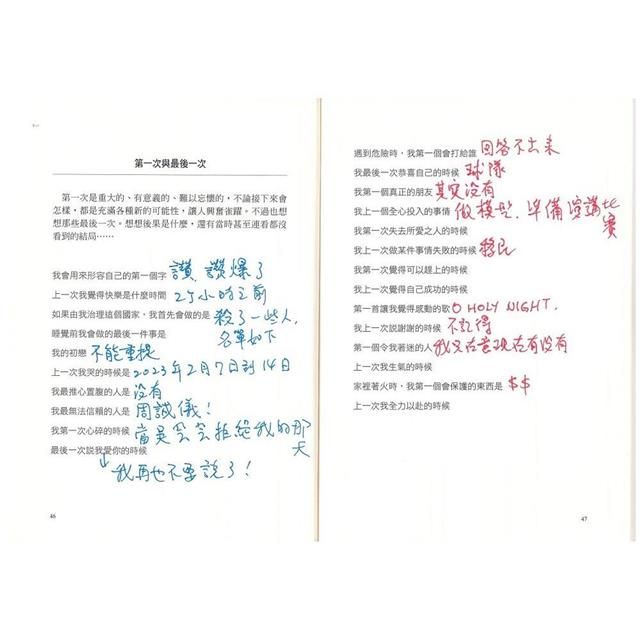 第一次與最後一次
第一次是重大的、有意義的、難以忘懷的，不論接下來會
怎樣，都是充滿各種新的可能性，讓人興奮雀躍。不過也想
想那些最後一次。想想後果是什麼，還有當時甚至連看都沒
看到的結局……
我會用來形容自己的第一個字 讚 讚爆了
上一次我覺得快樂是什麼時間 25小時之前
如果由我治理這個國家，我首先會做的是 殺了一些人,
睡覺前我會做的最後一件事是 名單如下
我的初戀 不能重提
上一次我哭的時候是 2023年2月7日到14日
我最推心置腹的人是 沒有
我最無法信賴的人是 周誠儀!
我第一次心碎的時候 當是 拒絕我的那
天
最後一次說我愛你的時候
↳ 我再也不要說了!
46
遇到危險時，我第一個會打給誰 回答不出來
我最後一次恭喜自己的時候 球隊
我第一個真正的朋友 其實沒有
我上一個全心投入的事情 做模型. 準備演講比
賽
我第一次失去所愛之人的時候
我上一次做某件事情失敗的時候 移民
我第一次覺得可以趕上的時候
我上一次覺得自己成功的時候
第一首讓我覺得感動的歌 O HOLY NIGHT.
我上一次說謝謝的時候 不記得
第一個令我著迷的人 我只在意現在有沒有
我上一次生氣的時候
家裡著火時，我第一個會保護的東西是 $$
上一次我全力以赴的時候
47